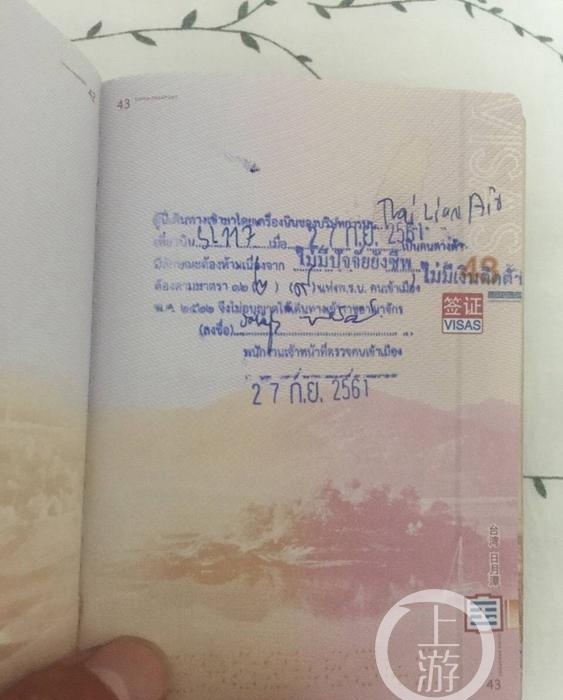 42
43 CHINA PASSPORT
VISAS
ผู้นี้เดินทางเข้ามาโดยเครื่องบินของบริษัทการบิน Thai Lion Air
เที่ยวบิน SL 117 เมื่อ 27 ก.ย. 2561 เป็นคนต่างด้าว
มีลักษณะต้องห้ามเนื่องจาก ไม่มีปัจจัยยังชีพ ไม่มีเงินติดตัว
ต้องตามมาตรา ๑๒ (๒) (๙) แห่ง พ.ร.บ. คนเข้าเมือง
พ.ศ. ๒๕๒๒ จึงไม่อนุญาตให้เดินทางเข้าราชอาณาจักร
(ลงชื่อ)
พนักงานเจ้าหน้าที่ตรวจคนเข้าเมือง
27 ก.ย. 2561
签证
VISAS
台湾 日月潭
43
上游